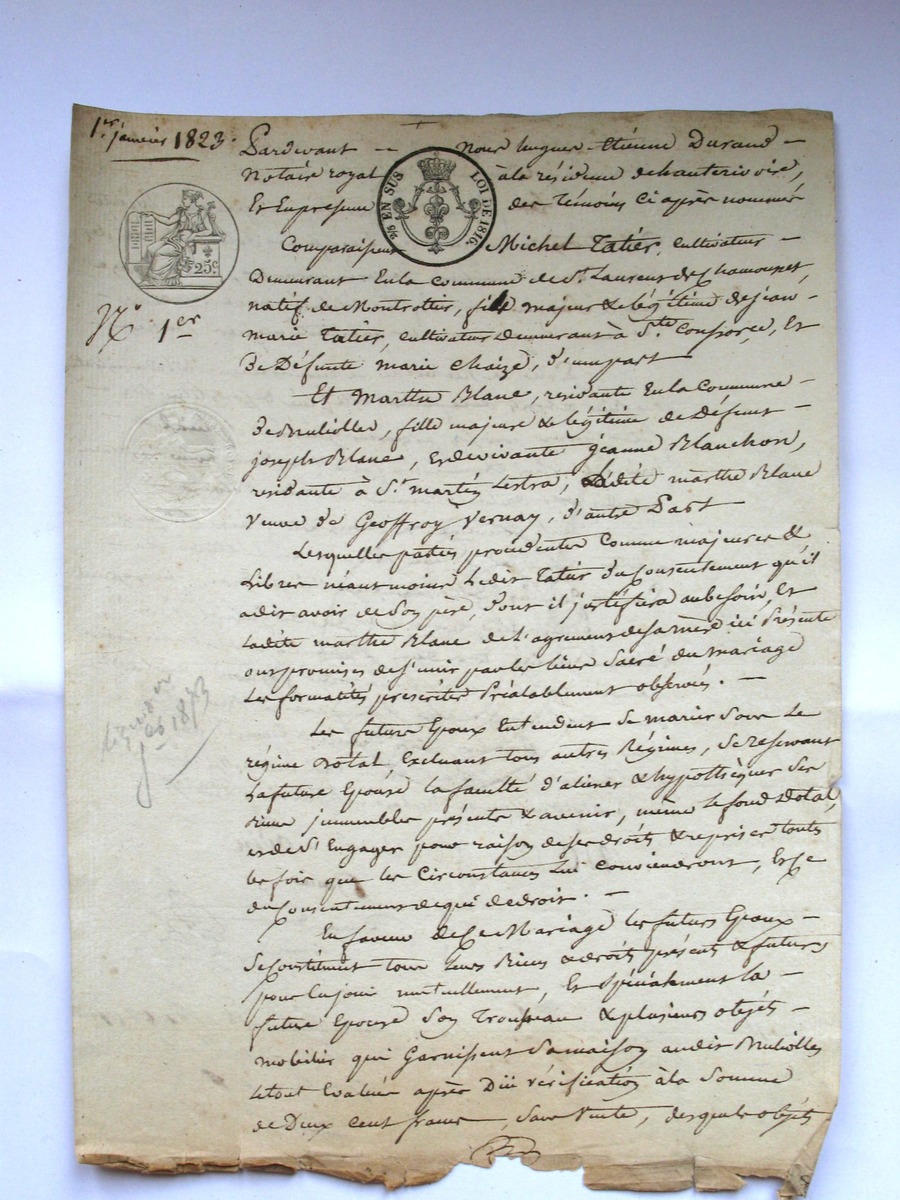 1er janvier 1823.
Pardevant - Nous hugues-Etienne Durand -
Notaire royal à la résidence de hauterivoire,
Et En présence des Témoins Ci après nommés
EN SUS
LOI DE 1816.
25c
N° 1er
Comparaissent Michel Tatier, Cultivateur -
Demeurant En la commune de St Laurent de Chamousset
natif de Montrottier, fils majeur & légitime de jean-
marie Tatier, cultivateur demeurant à Ste Consorce, Et
de Défunte marie Chaize, d'une part
Et Marthe Blanc, residante En la Commune -
de Brullioles, fille majeure & légitime de Défunt -
joseph Blanc, et de vivante jeanne Blanchon,
residante à St martin Lestra, Ladite marthe Blanc
Veuve de Geoffroy Vernay, d'autre Part
Lesquelles parties procedentes Comme majeures &
Libres néantmoins Ledit Tatier du Consentement qu'il
a dit avoir de Son père, dont il justifiera au besoin, Et
Ladite marthe Blanc de l'agrement de sa mère ici présente
ont promises de s'unir par les liens Sacré du Mariage
Les formalités prescrites Préalablement observées. -
Les future Epoux Entendent Se marier Sous Le
régime Dotal Excluant tous autres Régimes, Se reservant
La future Epouse la faculté d'aliéner & hypothèquer Ses
immeubles présents & avenir, même Le fond Dotal,
et de S'Engager pour raison de ses droits & reprises toutes
les fois que les Circonstances Lui Conviendront, Et Ce
du Consentement de qui de droit. -
En faveur de Ce Mariage les futurs Epoux -
Se Constituent tous Leurs Biens & droits présents & futurs
pour En jouir mutuellement, Et Spécialement la -
future Epouse Son Trousseau & plusieurs objets -
mobilier qui Garnissent Sa maison audit Brullioles
Le tout Evalué après Dûe vérification à la Somme
de Deux Cent francs, Sans Vente, desquels objets